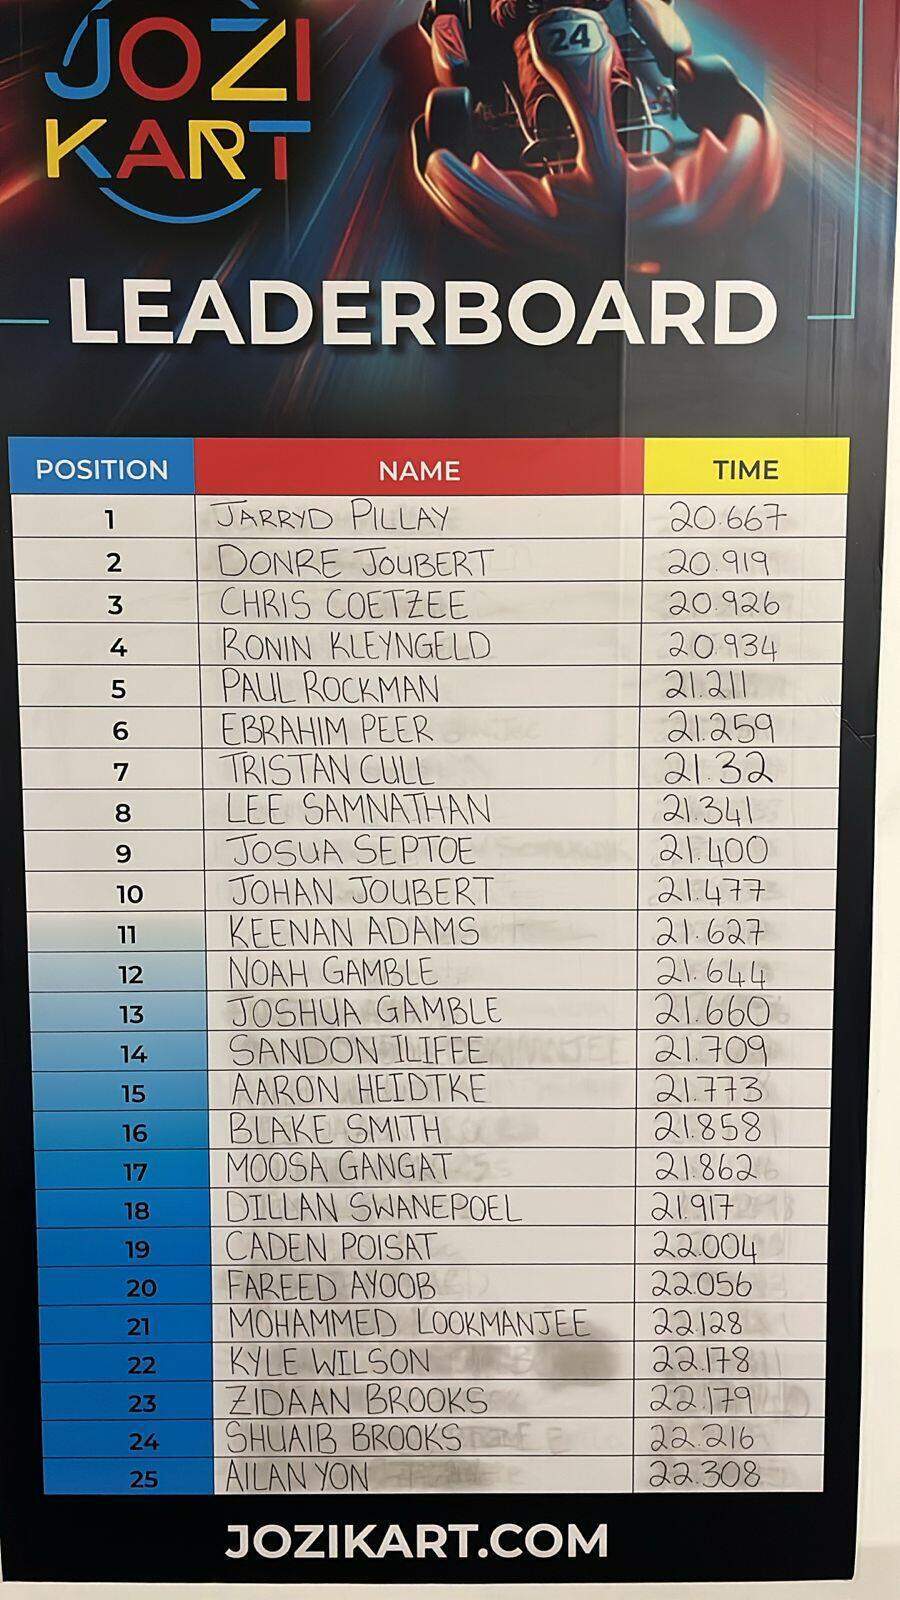 JOZI
KART
24
LEADERBOARD
POSITION NAME TIME
1 JARRYD PILLAY 20.667
2 DONRE JOUBERT 20.919
3 CHRIS COETZEE 20.926
4 RONIN KLEYNGELD 20.934
5 PAUL ROCKMAN 21.211
6 EBRAHIM PEER 21.259
7 TRISTAN CULL 21.32
8 LEE SAMNATHAN 21.341
9 JOSUA SEPTOE 21.400
10 JOHAN JOUBERT 21.477
11 KEENAN ADAMS 21.627
12 NOAH GAMBLE 21.644
13 JOSHUA GAMBLE 21.660
14 SANDON ILIFFE 21.709
15 AARON HEIDTKE 21.773
16 BLAKE SMITH 21.858
17 MOOSA GANGAT 21.862
18 DILLAN SWANEPOEL 21.917
19 CADEN POISAT 22.004
20 FAREED AYOOB 22.056
21 MOHAMMED LOOKMANJEE 22.128
22 KYLE WILSON 22.178
23 ZIDAAN BROOKS 22.179
24 SHUAIB BROOKS 22.216
25 AILAN YON 22.308
JOZIKART.COM